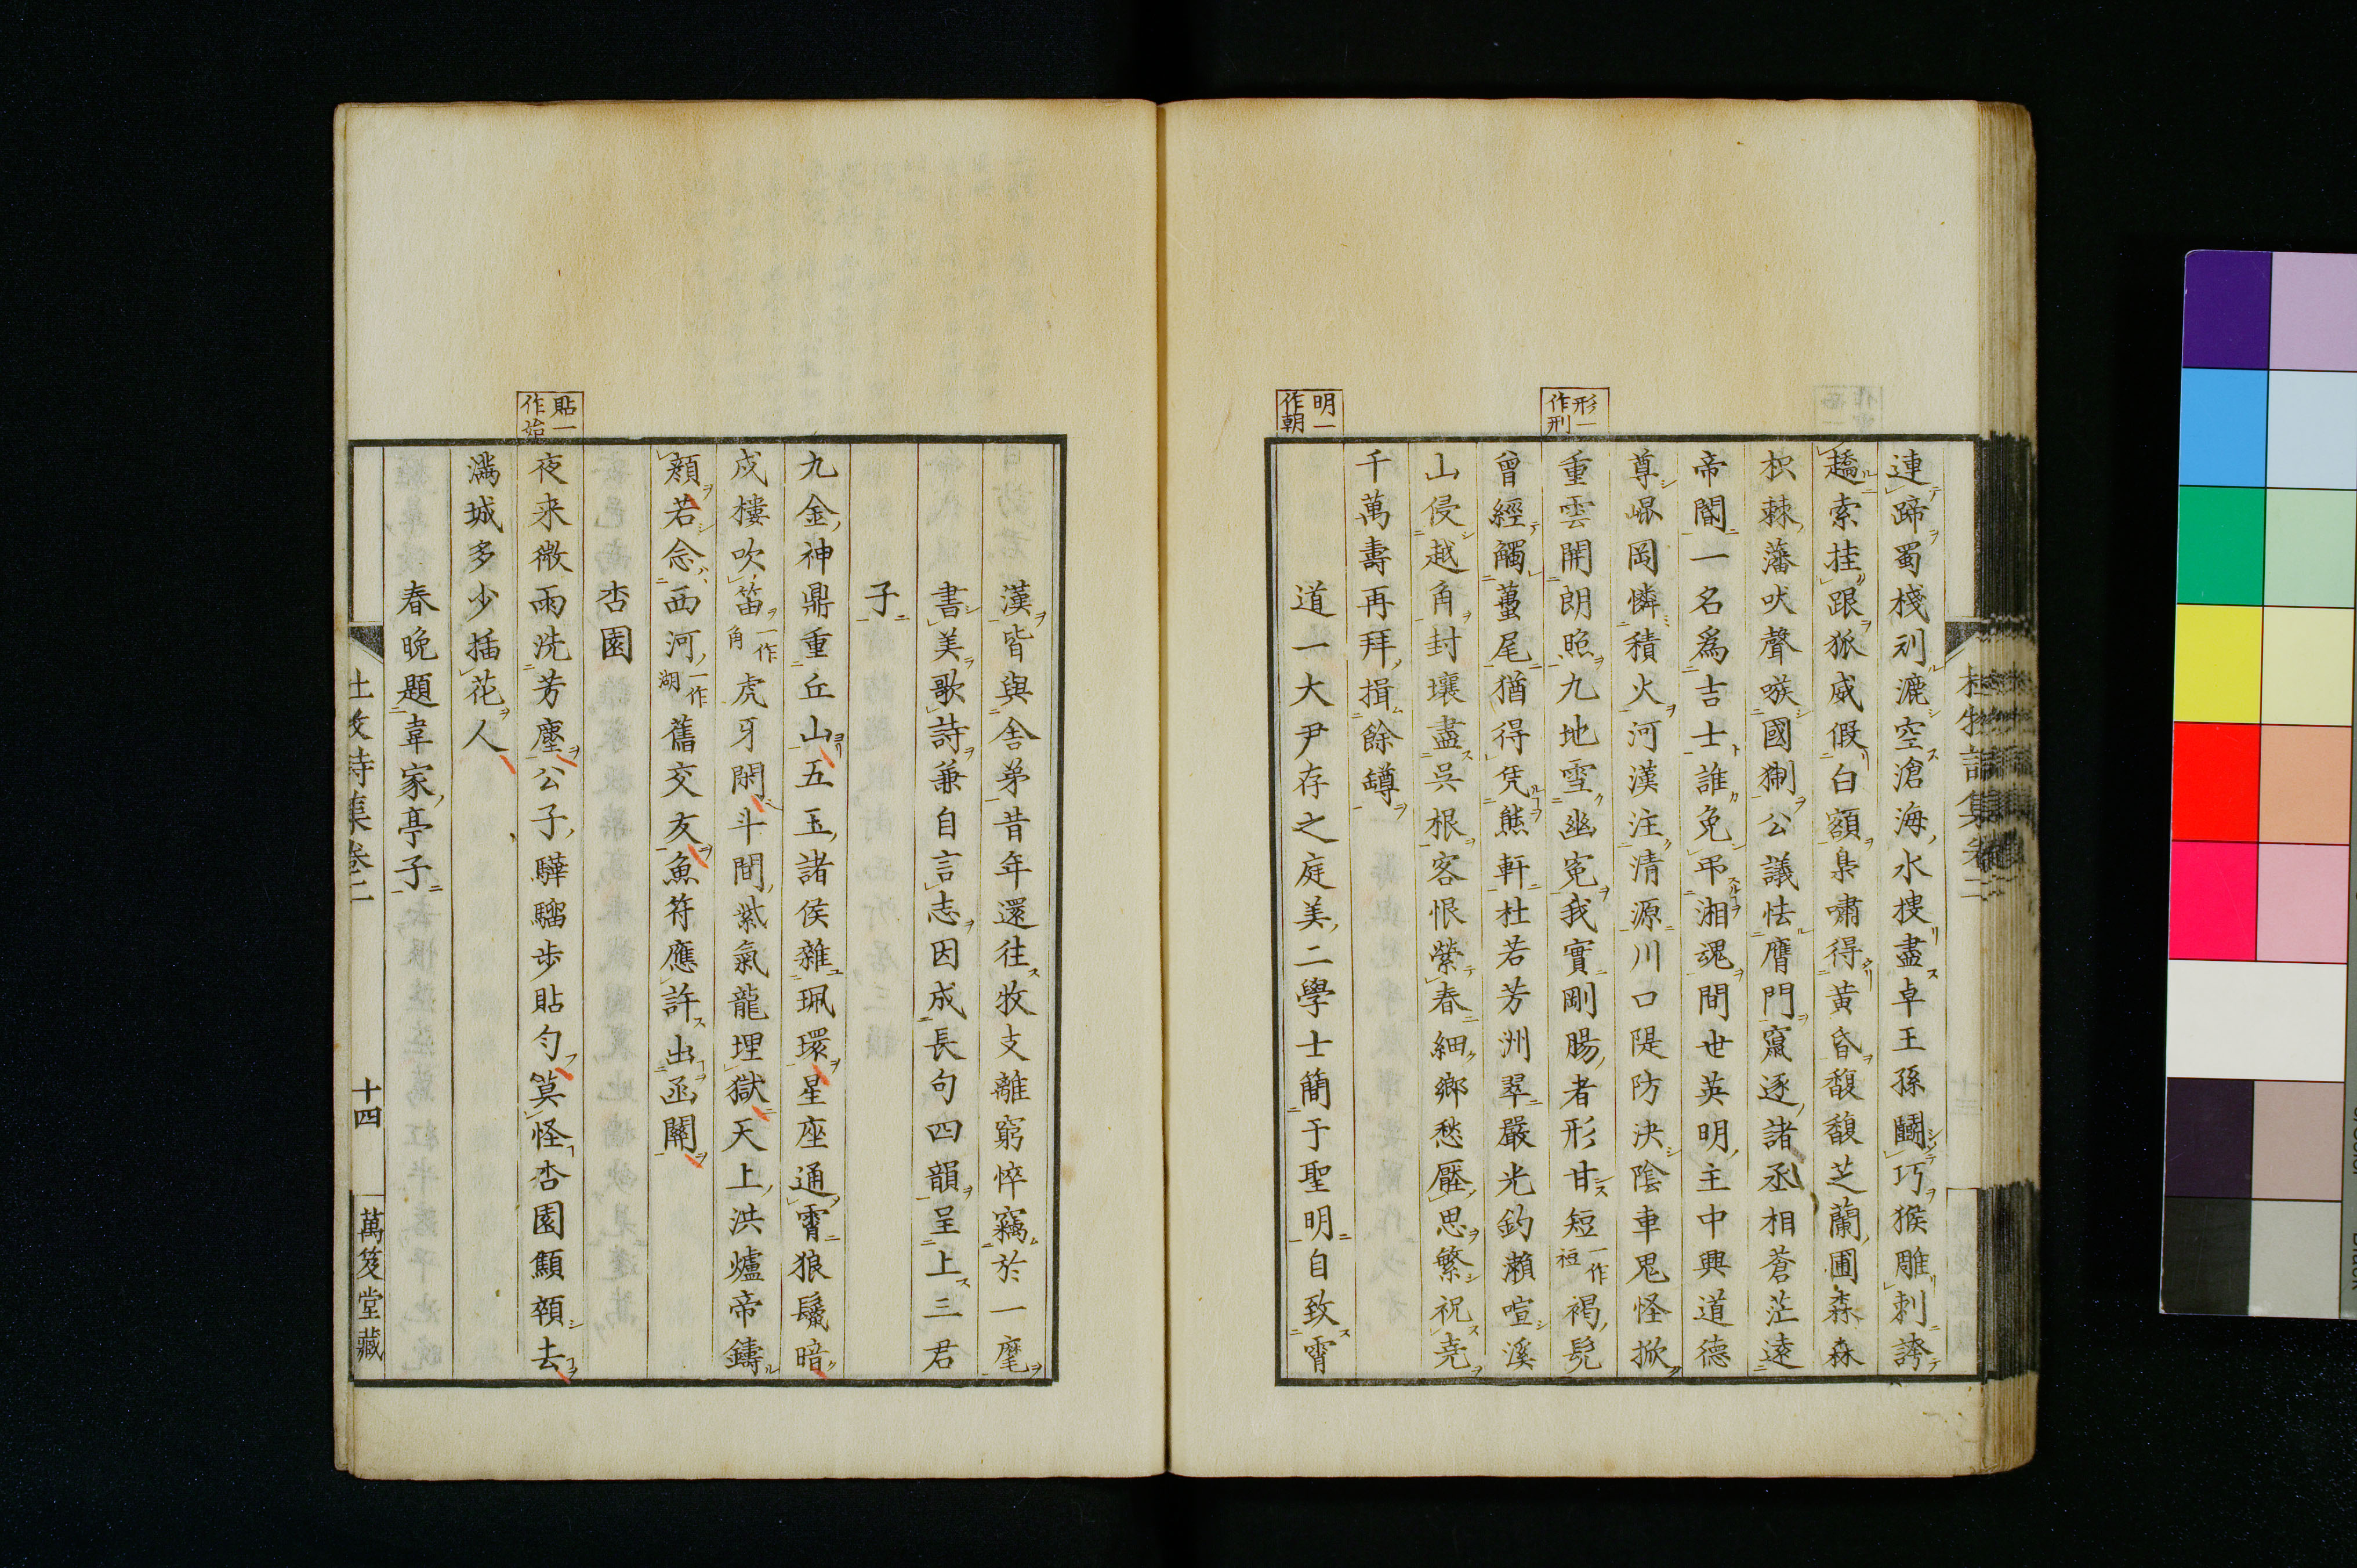 連蹄蜀棧刓漉空滄海水搜盡卓王孫鬭巧猴雕刺誇
趫索挂跟狐威假白額梟嘯得黃昏馥馥芝蘭圃森森
枳棘藩吠聲嗾國猘公議怯膺門竄逐諸丞相蒼茫遠
帝閽一名爲吉士誰免弔湘魂間世英明主中興道德
尊崐岡憐積火河漢注清源川口隄防決陰車鬼怪掀
形一作刑
重雲開朗照九地雪幽寃我實剛腸者形甘短一作裋褐髡
曾經觸蠆尾猶得凭熊軒杜若芳洲翠嚴光釣瀨喧溪
山侵越角封壤盡吳根客恨縈春細鄉愁壓思繁祝尭
千萬壽再拜揖餘罇
明一作朝
道一大尹存之庭美二學士簡于聖明自致霄
漢皆與舍弟昔年還往牧支離窮悴竊於一麾
書美歌詩兼自言志因成長句四韻呈上三君
子
九金神鼎重丘山五玉諸侯雜珮環星座通霄狼鬣暗
戍樓吹笛一作角虎牙閑斗間紫氣龍埋獄天上洪爐帝鑄
顏若念西河一作湖舊交友魚符應許出函關
杏園
貼一作始
夜来微雨洗芳塵公子驊騮步貼勻莫怪杏園顦顇去
滿城多少插花人
春晚題韋家亭子
杜牧詩集卷二
十四
萬笈堂藏